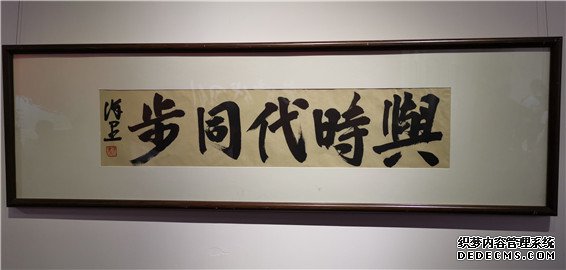 與時代同步
织梦内容管理系统
DEDECMS.COM